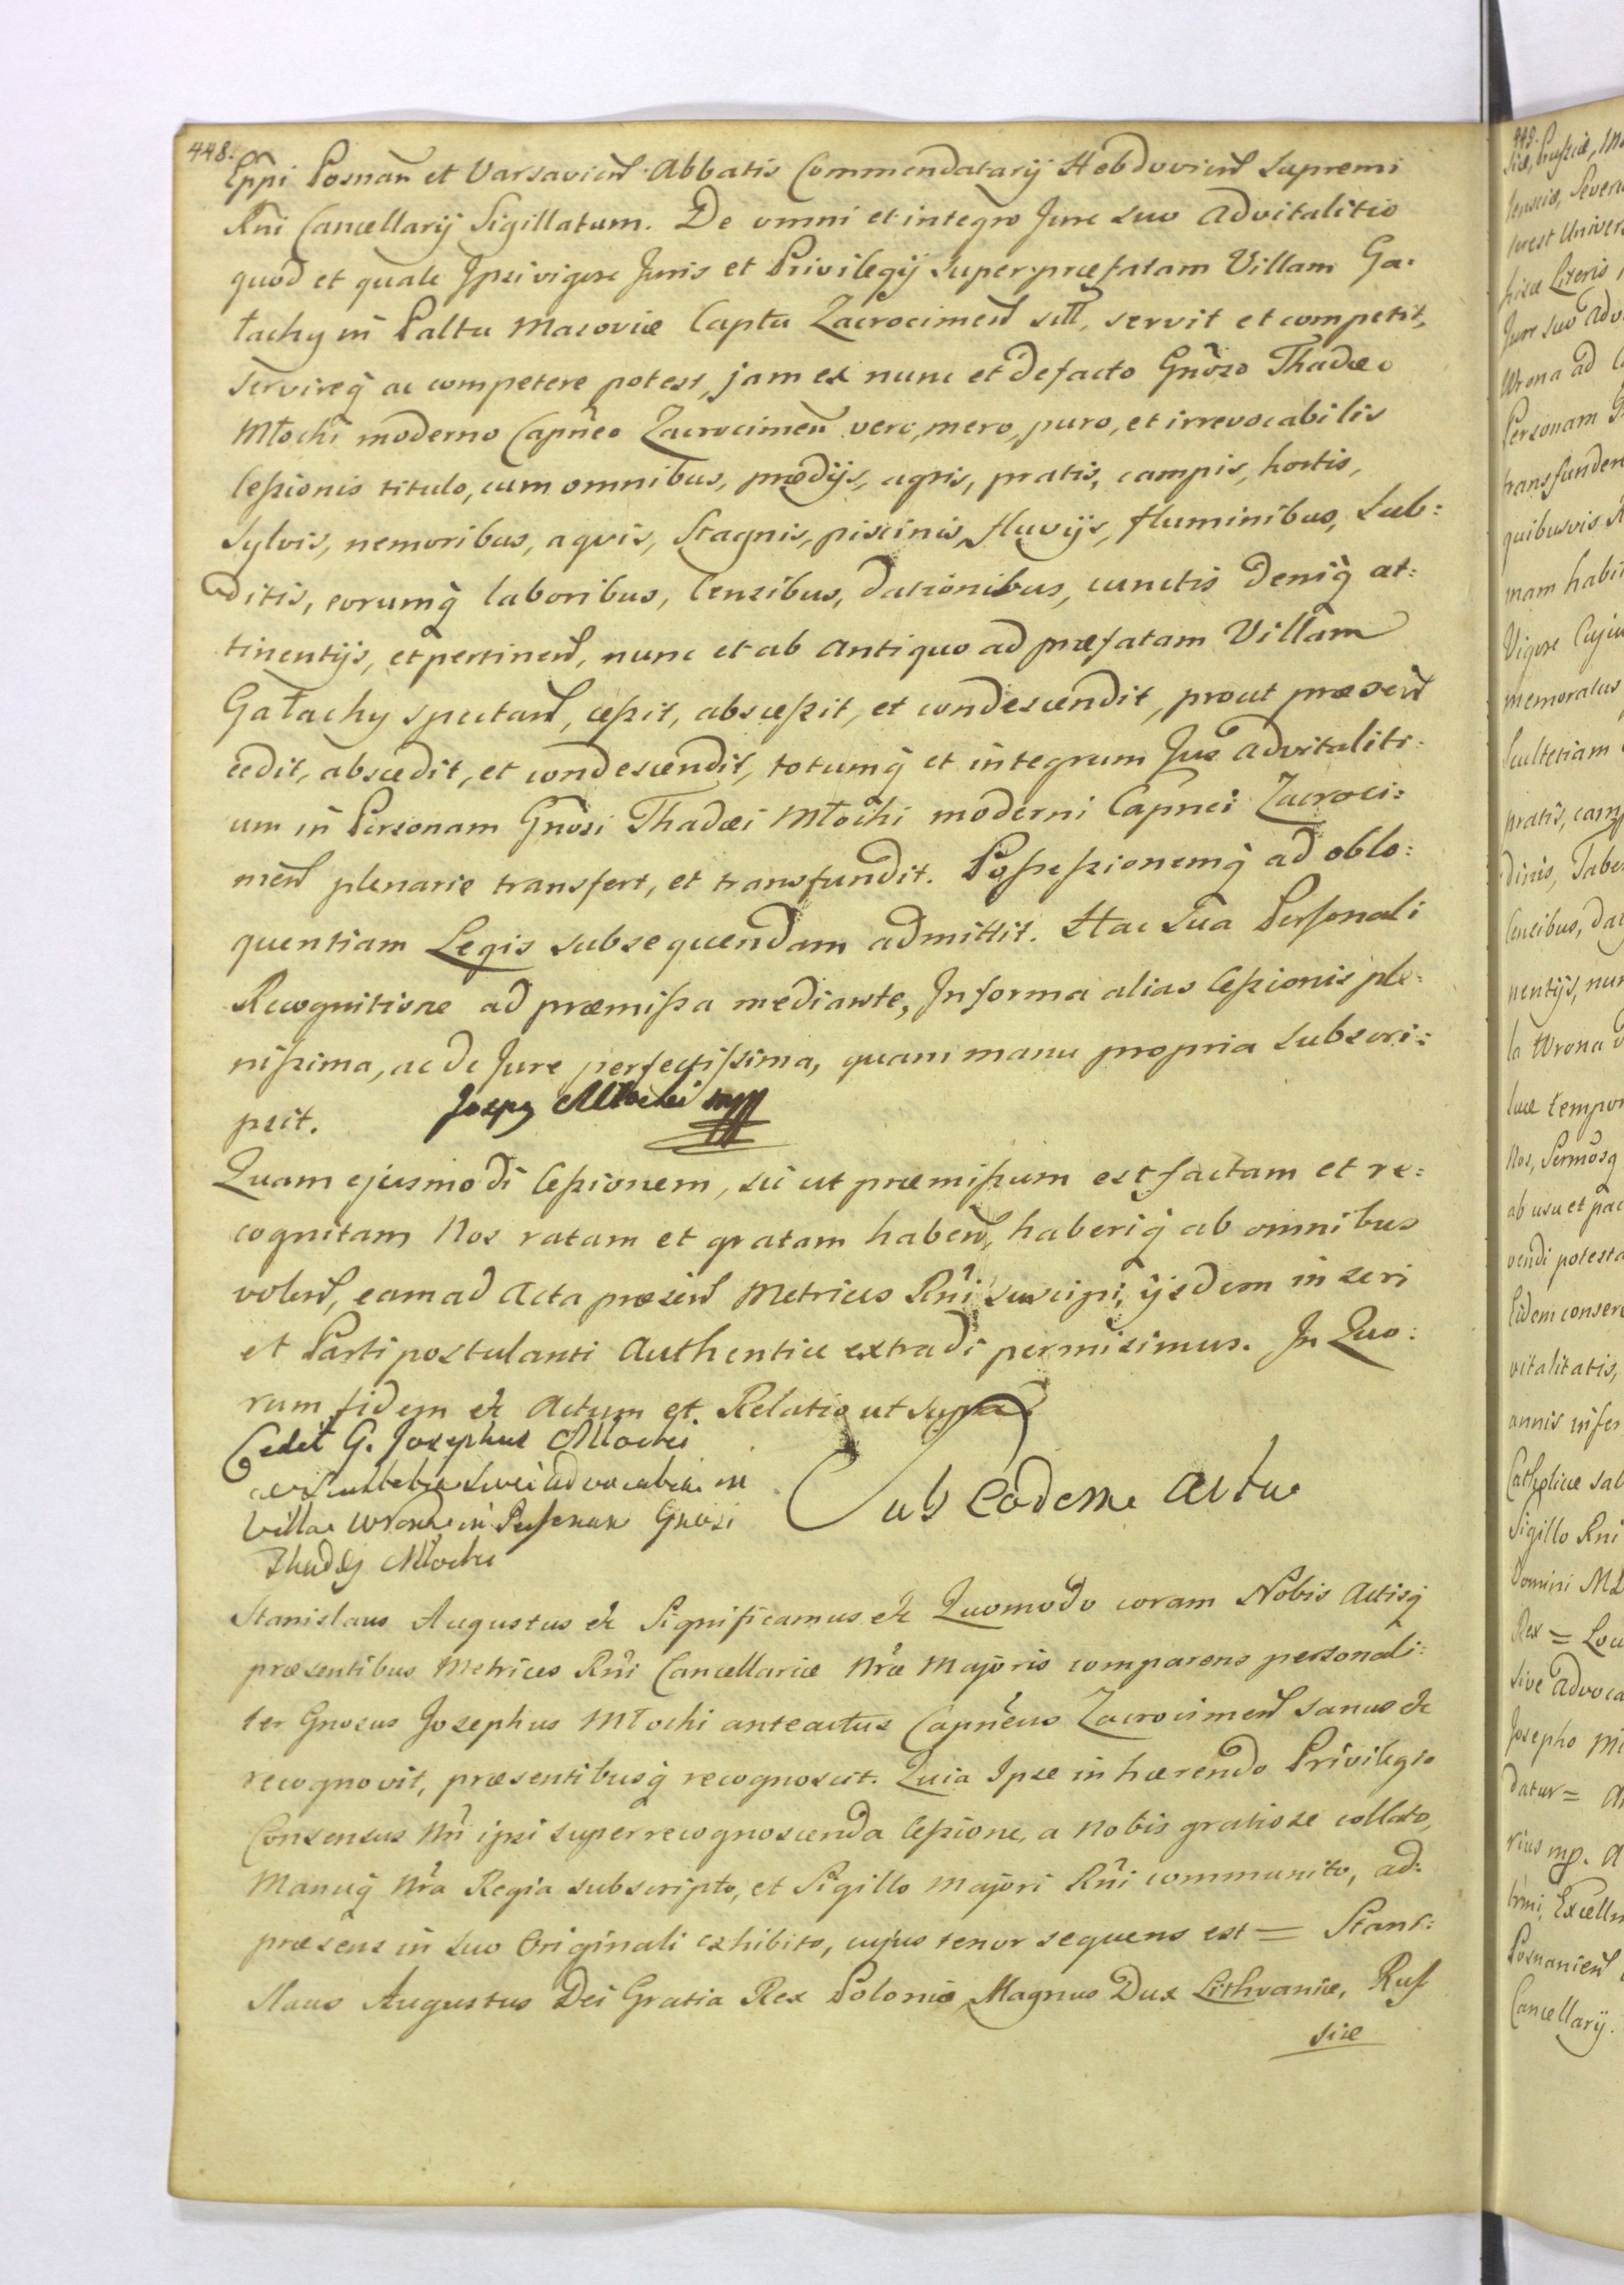 448.
Eppi Posnan et Varsavien Abbatis Commendatarij Hebdovien Supremi
Rni Cancellarij Sigillatum. De omni et integro Jure suo advitalitio
quod et quale Ipsi vigore Juris et Privilegij super præfatam Villam Ga-
łachy in Paltu Masoviæ Captu Zacrocimen sitt, servit et competit,
servireq ac competere potest, jam ex nunc et defacto Gnoso Thadæo
Młocki moderno Capneo Zacrocimen vero, mero, puro, et irrevocabilis
Cessionis titulo, cum omnibus, prædijs, agris, pratis, campis, hortis,
sylvis, nemoribus, aqvis, Stagnis, piscinis, fluvijs, fluminibus, Sub:
ditis, eorumq laboribus, Censibus, dationibus, cunctis deniq at:
tinentijs, et pertinen, nunc et ab antiquo ad præfatam Villam
Gałachy spectan, cessit, abscessit, et condescendit, prout præsen
cedit, abscedit, et condescendit, totumq et integrum Jus advitaliti:
um in Personam Gnosi Thadæi Młocki moderni Capnei Zacroci:
men plenarie transfert, et transfundit. Possessionemq ad oblo:
quentiam Legis subsequendam admittit. Hac sua Personali
Recognitione ad præmissa mediante, In forma alias Cessionis ple:
nissima, ac de Jure perfectissima, quam manu propria subscri:
psit. Jozef Młocki mpp
Quam ejusmodi Cessionem, sic ut præmissum est factam et re:
cognitam Nos ratam et gratam haben, haberiq ab omnibus
volen, eam ad Acta præsen Metrices Rni suscipi, ijsdem inseri
et Parti postulanti Authentice extradi permisimus. In Quo:
rum fidem &c Actum et Relatio ut supra
Cedit G. Josephus Młocki
de Scultetia sive advocatia in
Villa Wrona in Personam Gnosi
Thadej Młocki
Sub eodem actu
Stanislaus Augustus &c Significamus &c Quomodo coram Nobis Actisq
præsentibus Metrices Rni Cancellariæ Nræ Majoris comparens personali:
ter Gnosus Josephus Młocki anteactus Capneus Zacrocimen sanus &c
recognovit, præsentibusq recognoscit. Quia Ipse inhærendo Privilegio
Consensus Nri ipsi super recognoscenda Cessione, a Nobis gratiose collato,
Manuq Nra Regia subscripto, et Sigillo Majori Rni communito, ad:
præsens in suo Originali exhibito, cujus tenor sequens est = Stani:
slaus Augustus Dei Gratia Rex Poloniæ Magnus Dux Lithvaniæ, Rus
siæ